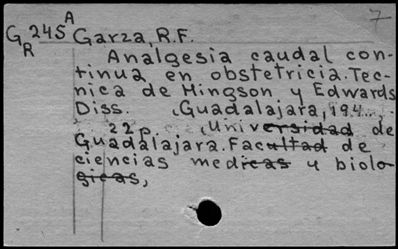 7
A
G 245 Garza, R.F.
R
Analgesia caudal con-
tinua en obstetricia. Tec-
nica de Hingson y Edwards
Diss. Guadalajara, 194...
22 p. Universidad de
Guadalajara. Facultad de
ciencias medicas y biolo-
gicas,